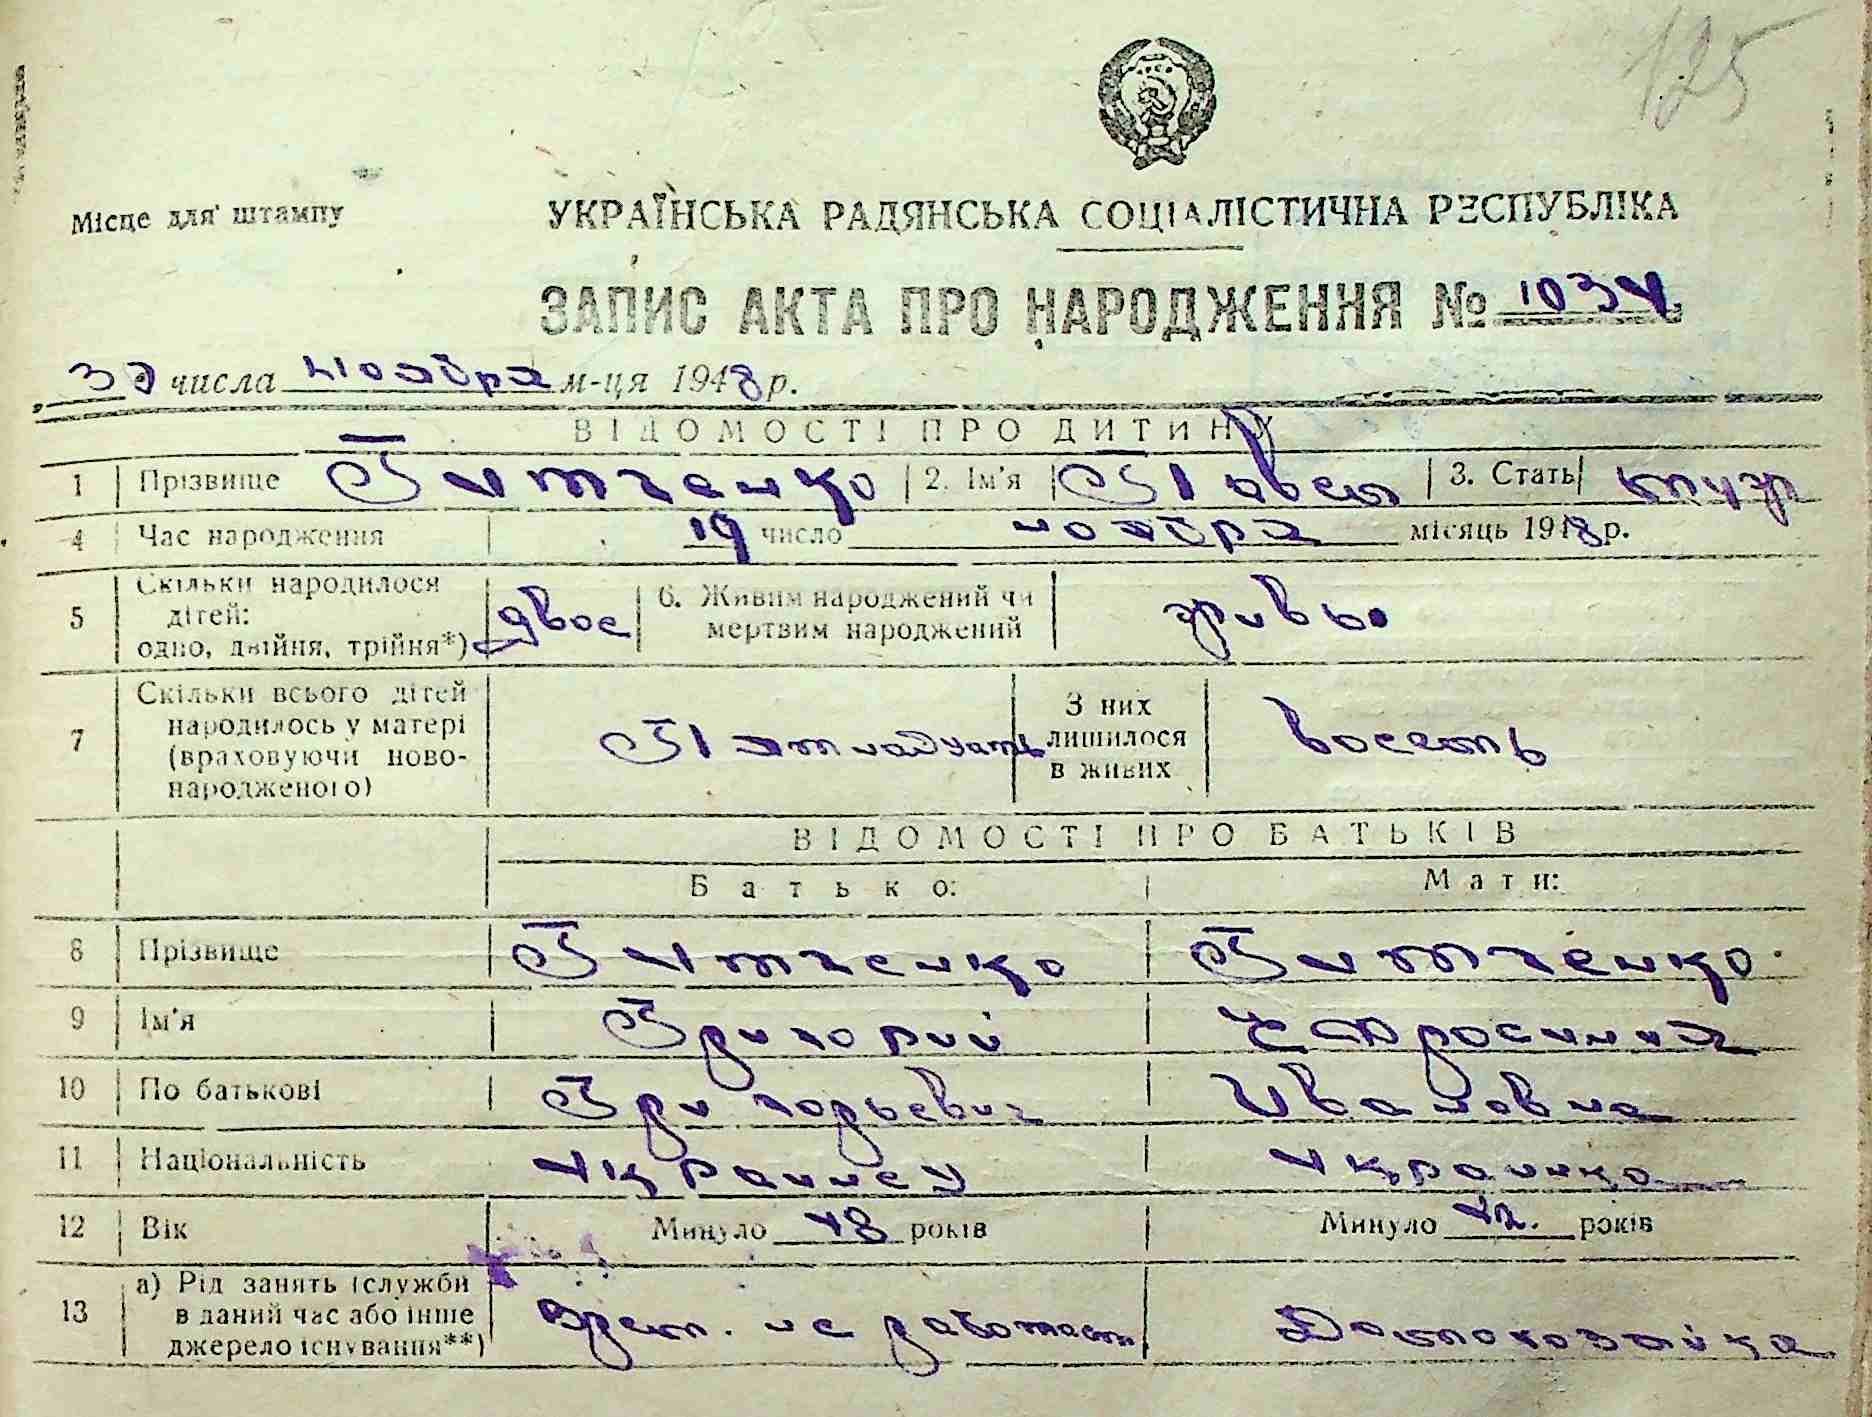 125
Місце для штампу
УКРАЇНСЬКА РАДЯНСЬКА СОЦІАЛІСТИЧНА РЕСПУБЛІКА
ЗАПИС АКТА ПРО НАРОДЖЕННЯ № 1034
30 числа ноября м-ця 1948 р.
ВІДОМОСТІ ПРО ДИТИНУ
1 Прізвище Гитченко 2. Ім'я Павел 3. Стать муж
4 Час народження 19 число ноября місяць 1948 р.
5 Скільки народилося дітей: одно, двійня, трійня*) двое 6. Живим народжений чи мертвим народжений живы
7 Скільки всього дітей народилось у матері (враховуючи ново-народженого) Пятнадцать З них лишилося в живих восемь
ВІДОМОСТІ ПРО БАТЬКІВ
Батько: Мати:
8 Прізвище Гитченко Гитченко
9 Ім'я Григорий Ефросиния
10 По батькові Григорьевич Ивановна
11 Національність украинец украинка
12 Вік Минуло 48 років Минуло 42 років
13 а) Рід занять (служби в даний час або інше джерело існування**) Врем. не работает Домохозяйка